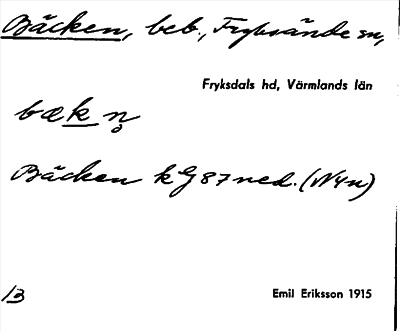 Bäcken, beb., Fryksände sn,
Fryksdals hd, Värmlands län
bækn̥
Bäcken kG87ned. (N4n)
13
Emil Eriksson 1915